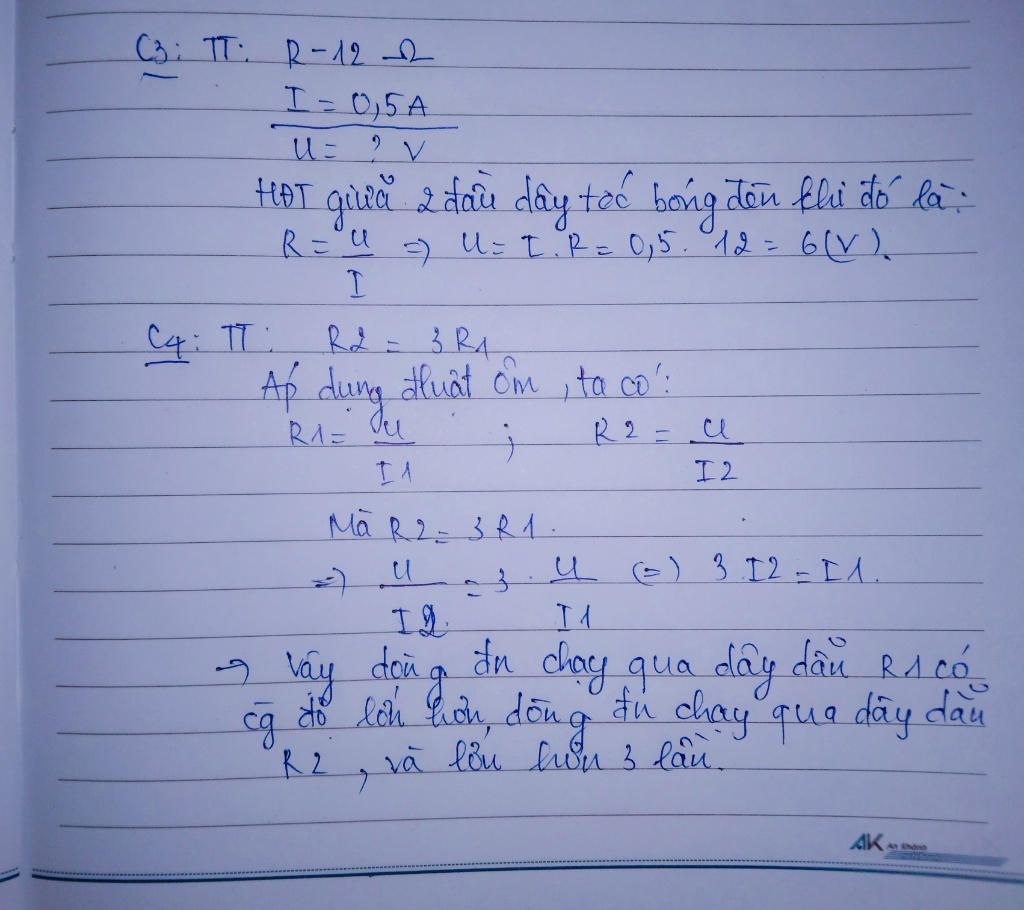 C3: TT: R - 12 Ω
I = 0,5A
U = ? V
HĐT giữa 2 đầu dây tóc bóng đèn khi đó là:
R = U/I => U = I.R = 0,5. 12 = 6(V).
C4: TT: R2 = 3R1
Áp dụng đluật Ôm, ta có:
R1 = U/I1 ; R2 = U/I2
Mà R2 = 3R1.
=> U/I2 = 3. U/I1 (=) 3.I2 = I1.
-> Vậy dòng đn chạy qua dây dẫn R1 có
cg độ lớn hơn dòng đn chạy qua dây dẫn
R2, và lớn hơn 3 lần.
AK An Khánh